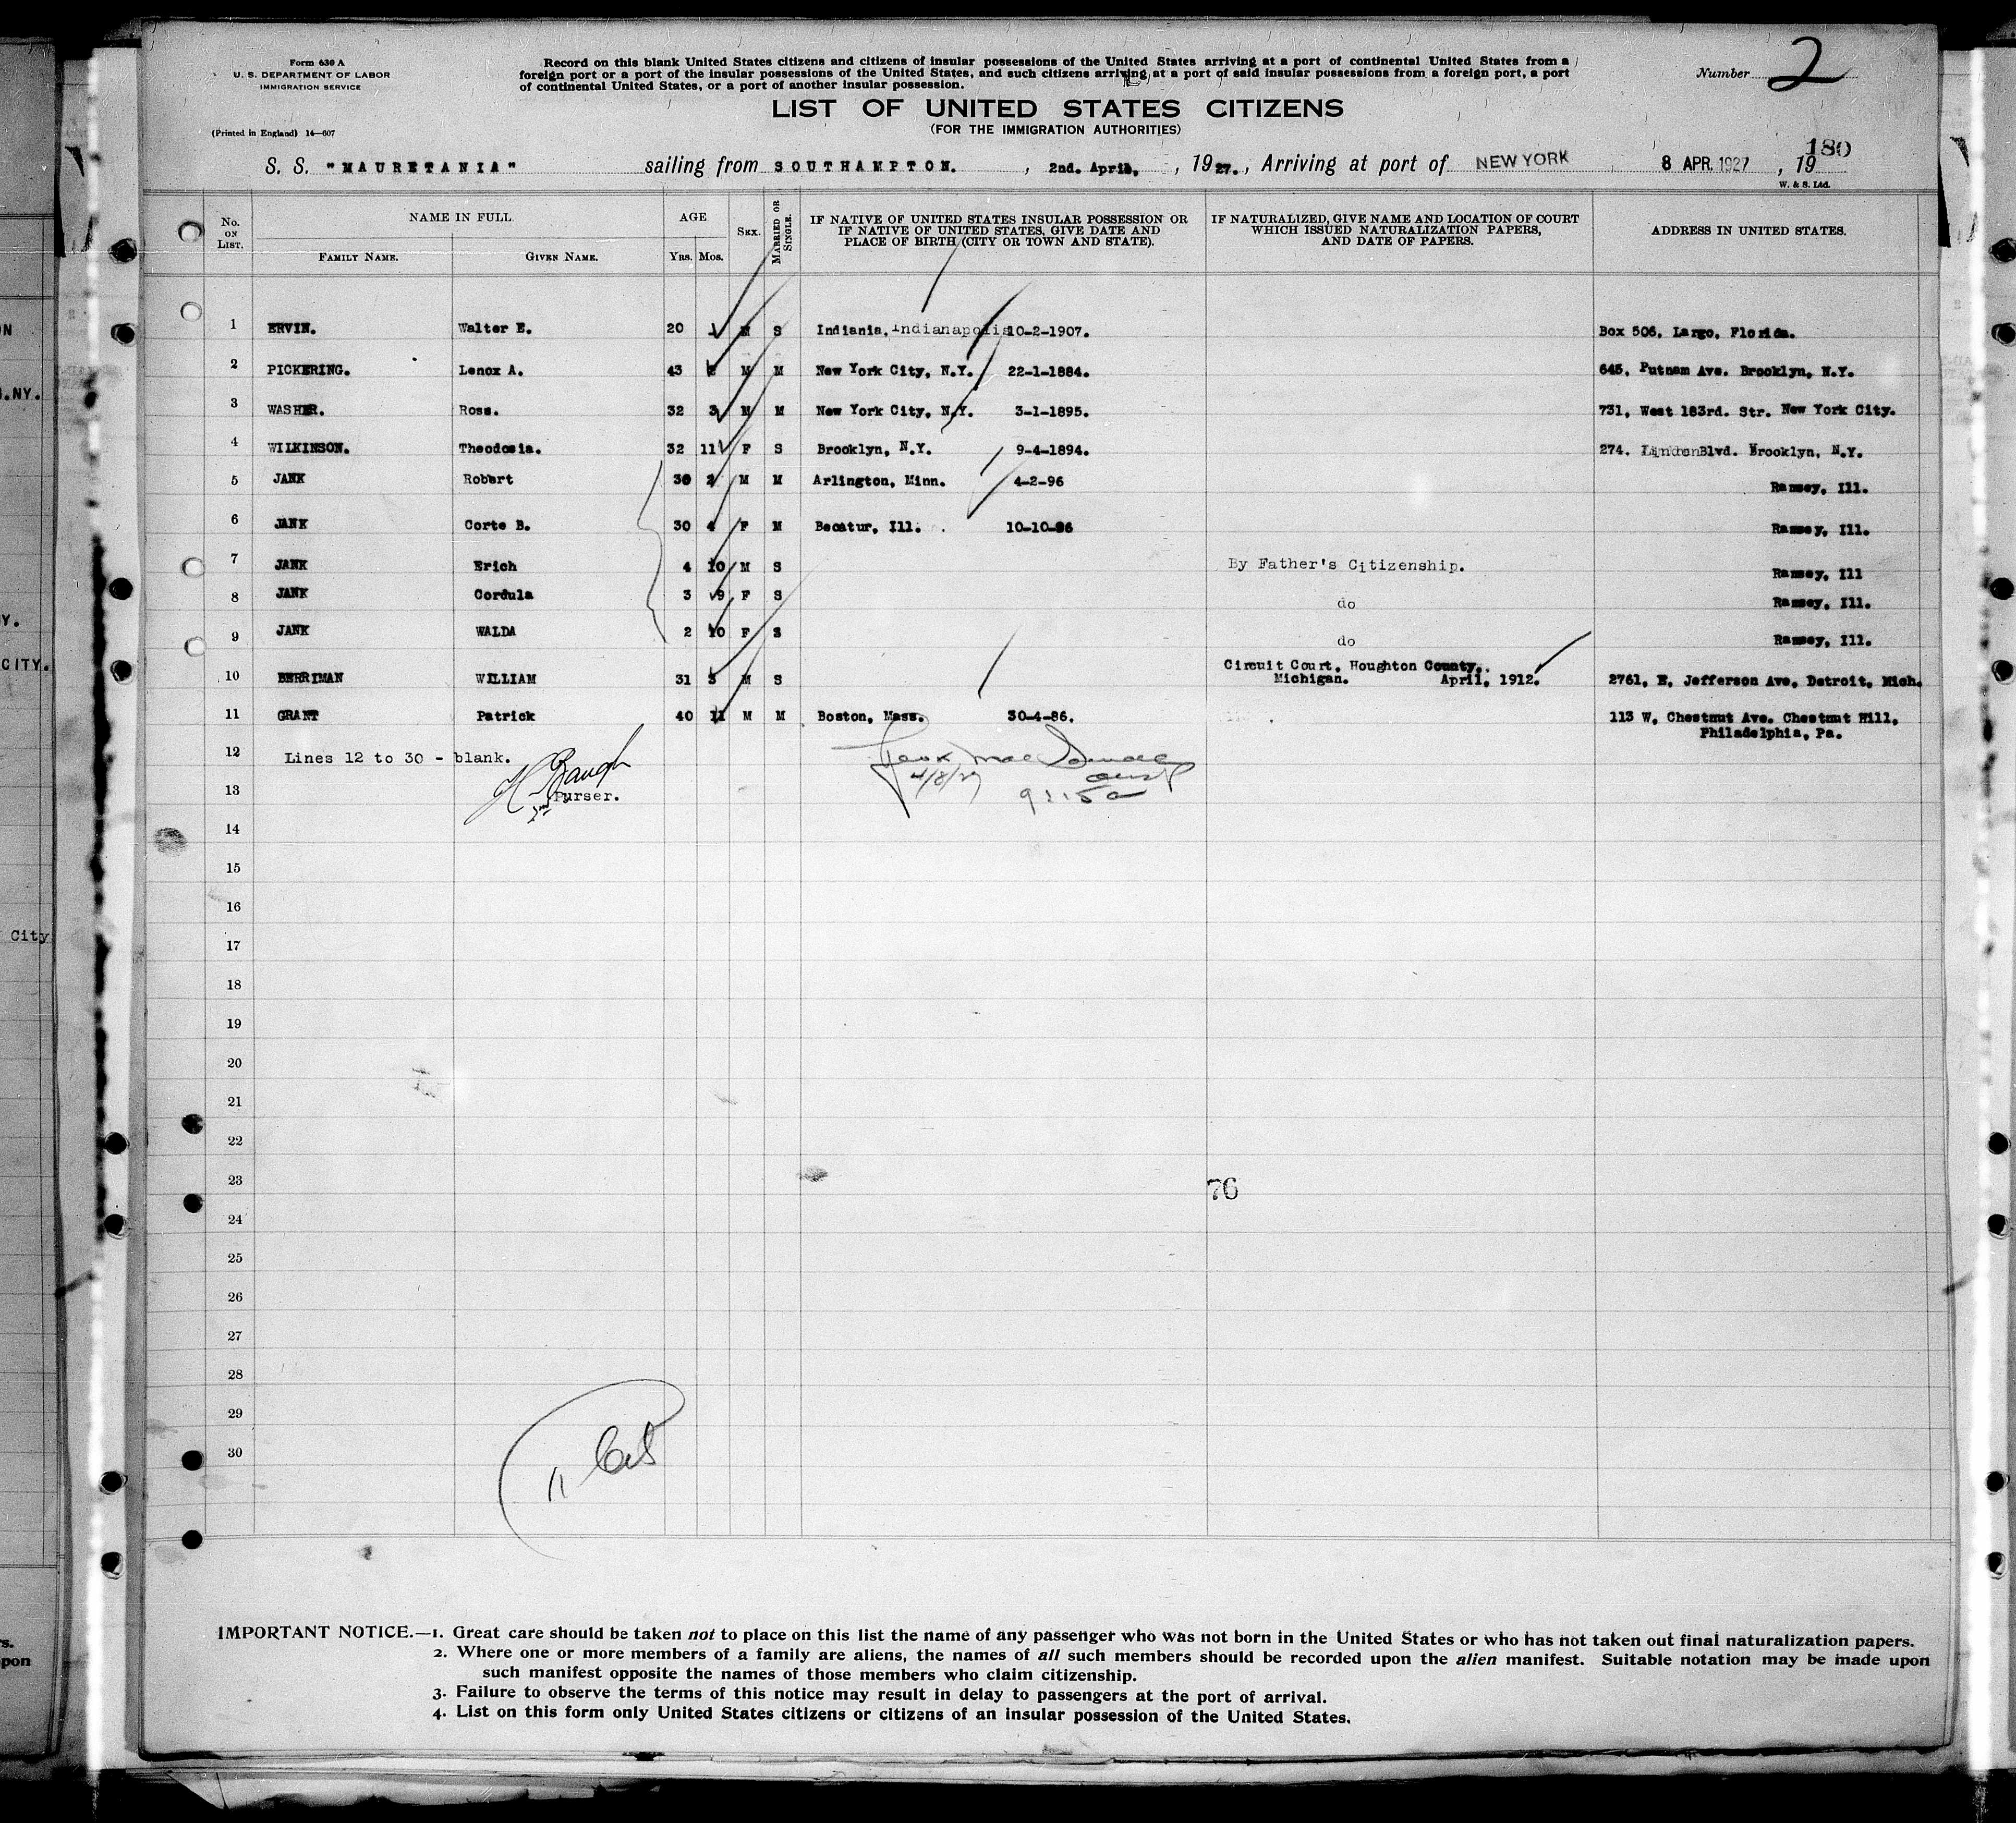 Form 630 A
U. S. DEPARTMENT OF LABOR
IMMIGRATION SERVICE
(Printed in England) 14—607
Record on this blank United States citizens and citizens of insular possessions of the United States arriving at a port of continental United States from a
foreign port or a port of the insular possessions of the United States, and such citizens arriving at a port of said insular possessions from a foreign port, a port
of continental United States, or a port of another insular possession.
Number 2
LIST OF UNITED STATES CITIZENS
(FOR THE IMMIGRATION AUTHORITIES)
180
S. S. "MAURETANIA" sailing from SOUTHAMPTON. , 2nd. April, , 1927. , Arriving at port of NEW YORK 8 APR. 1927 , 19
W. & S. Ltd.
No. ON LIST. NAME IN FULL. FAMILY NAME. GIVEN NAME. AGE YRS. MOS. SEX. MARRIED OR SINGLE. IF NATIVE OF UNITED STATES INSULAR POSSESSION OR IF NATIVE OF UNITED STATES, GIVE DATE AND PLACE OF BIRTH (CITY OR TOWN AND STATE). IF NATURALIZED, GIVE NAME AND LOCATION OF COURT WHICH ISSUED NATURALIZATION PAPERS, AND DATE OF PAPERS. ADDRESS IN UNITED STATES.
1 ERVIN. Walter E. 20 M S Indiania, Indianapolis 10-2-1907. Box 506, Largo, Florida.
2 PICKERING. Lenox A. 43 M M New York City, N.Y. 22-1-1884. 645, Putnam Ave. Brooklyn, N.Y.
3 WASHER. Ross. 32 3 M M New York City, N.Y. 3-1-1895. 731, West 183rd. Str. New York City.
4 WILKINSON. Theodosia. 32 11 F S Brooklyn, N.Y. 9-4-1894. 274. Linden Blvd. Brooklyn, N.Y.
5 JANK Robert 30 2 M M Arlington, Minn. 4-2-96 Ramsey, Ill.
6 JANK Corte B. 30 4 F M Becatur, Ill. 10-10-96 Ramsey, Ill.
7 JANK Erich 4 10 M S By Father's Citizenship. Ramsey, Ill
8 JANK Cordula 3 9 F S do Ramsey, Ill.
9 JANK WALDA 2 10 F S do Ramsey, Ill.
10 BERRIMAN WILLIAM 31 M S Circuit Court. Houghton County, Michigan. April, 1912. 2761, E. Jefferson Ave, Detroit, Mich.
11 GRANT Patrick 40 11 M M Boston, Mass. 30-4-86. 113 W. Chestnut Ave. Chestnut Hill,
Philadelphia, Pa.
12 Lines 12 to 30 - blank.
4/8/27
13 Purser. 9:15 a
14
15
16
17
18
19
20
21
22
23
76
24
25
26
27
28
29
30
11
IMPORTANT NOTICE.—1. Great care should be taken not to place on this list the name of any passenger who was not born in the United States or who has not taken out final naturalization papers.
2. Where one or more members of a family are aliens, the names of all such members should be recorded upon the alien manifest. Suitable notation may be made upon
such manifest opposite the names of those members who claim citizenship.
3. Failure to observe the terms of this notice may result in delay to passengers at the port of arrival.
4. List on this form only United States citizens or citizens of an insular possession of the United States.